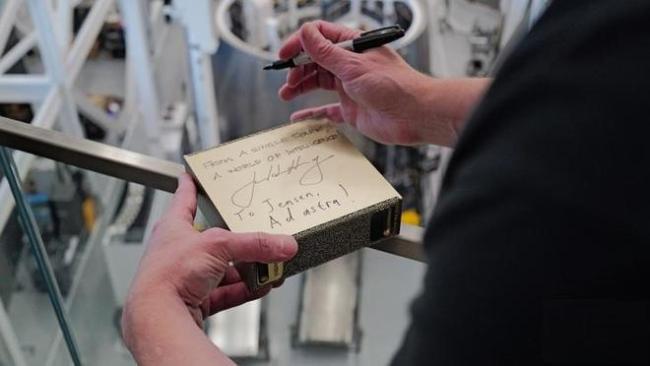 FROM A SINGLE
A WORLD OF INTELLIGENCE
To Jensen,
Ad astra!